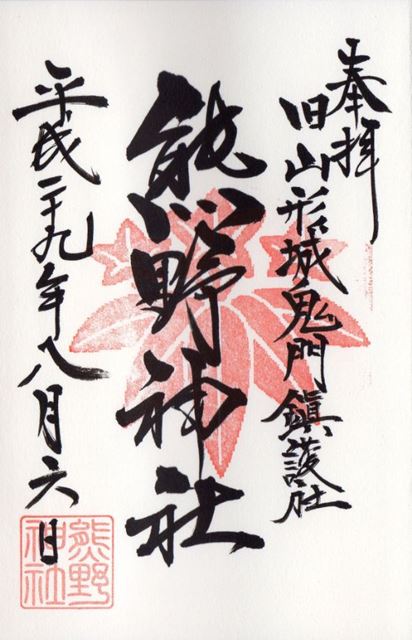 奉拝
旧山形城鬼門鎮護社
熊野神社
平成二十九年八月六日
熊野神社